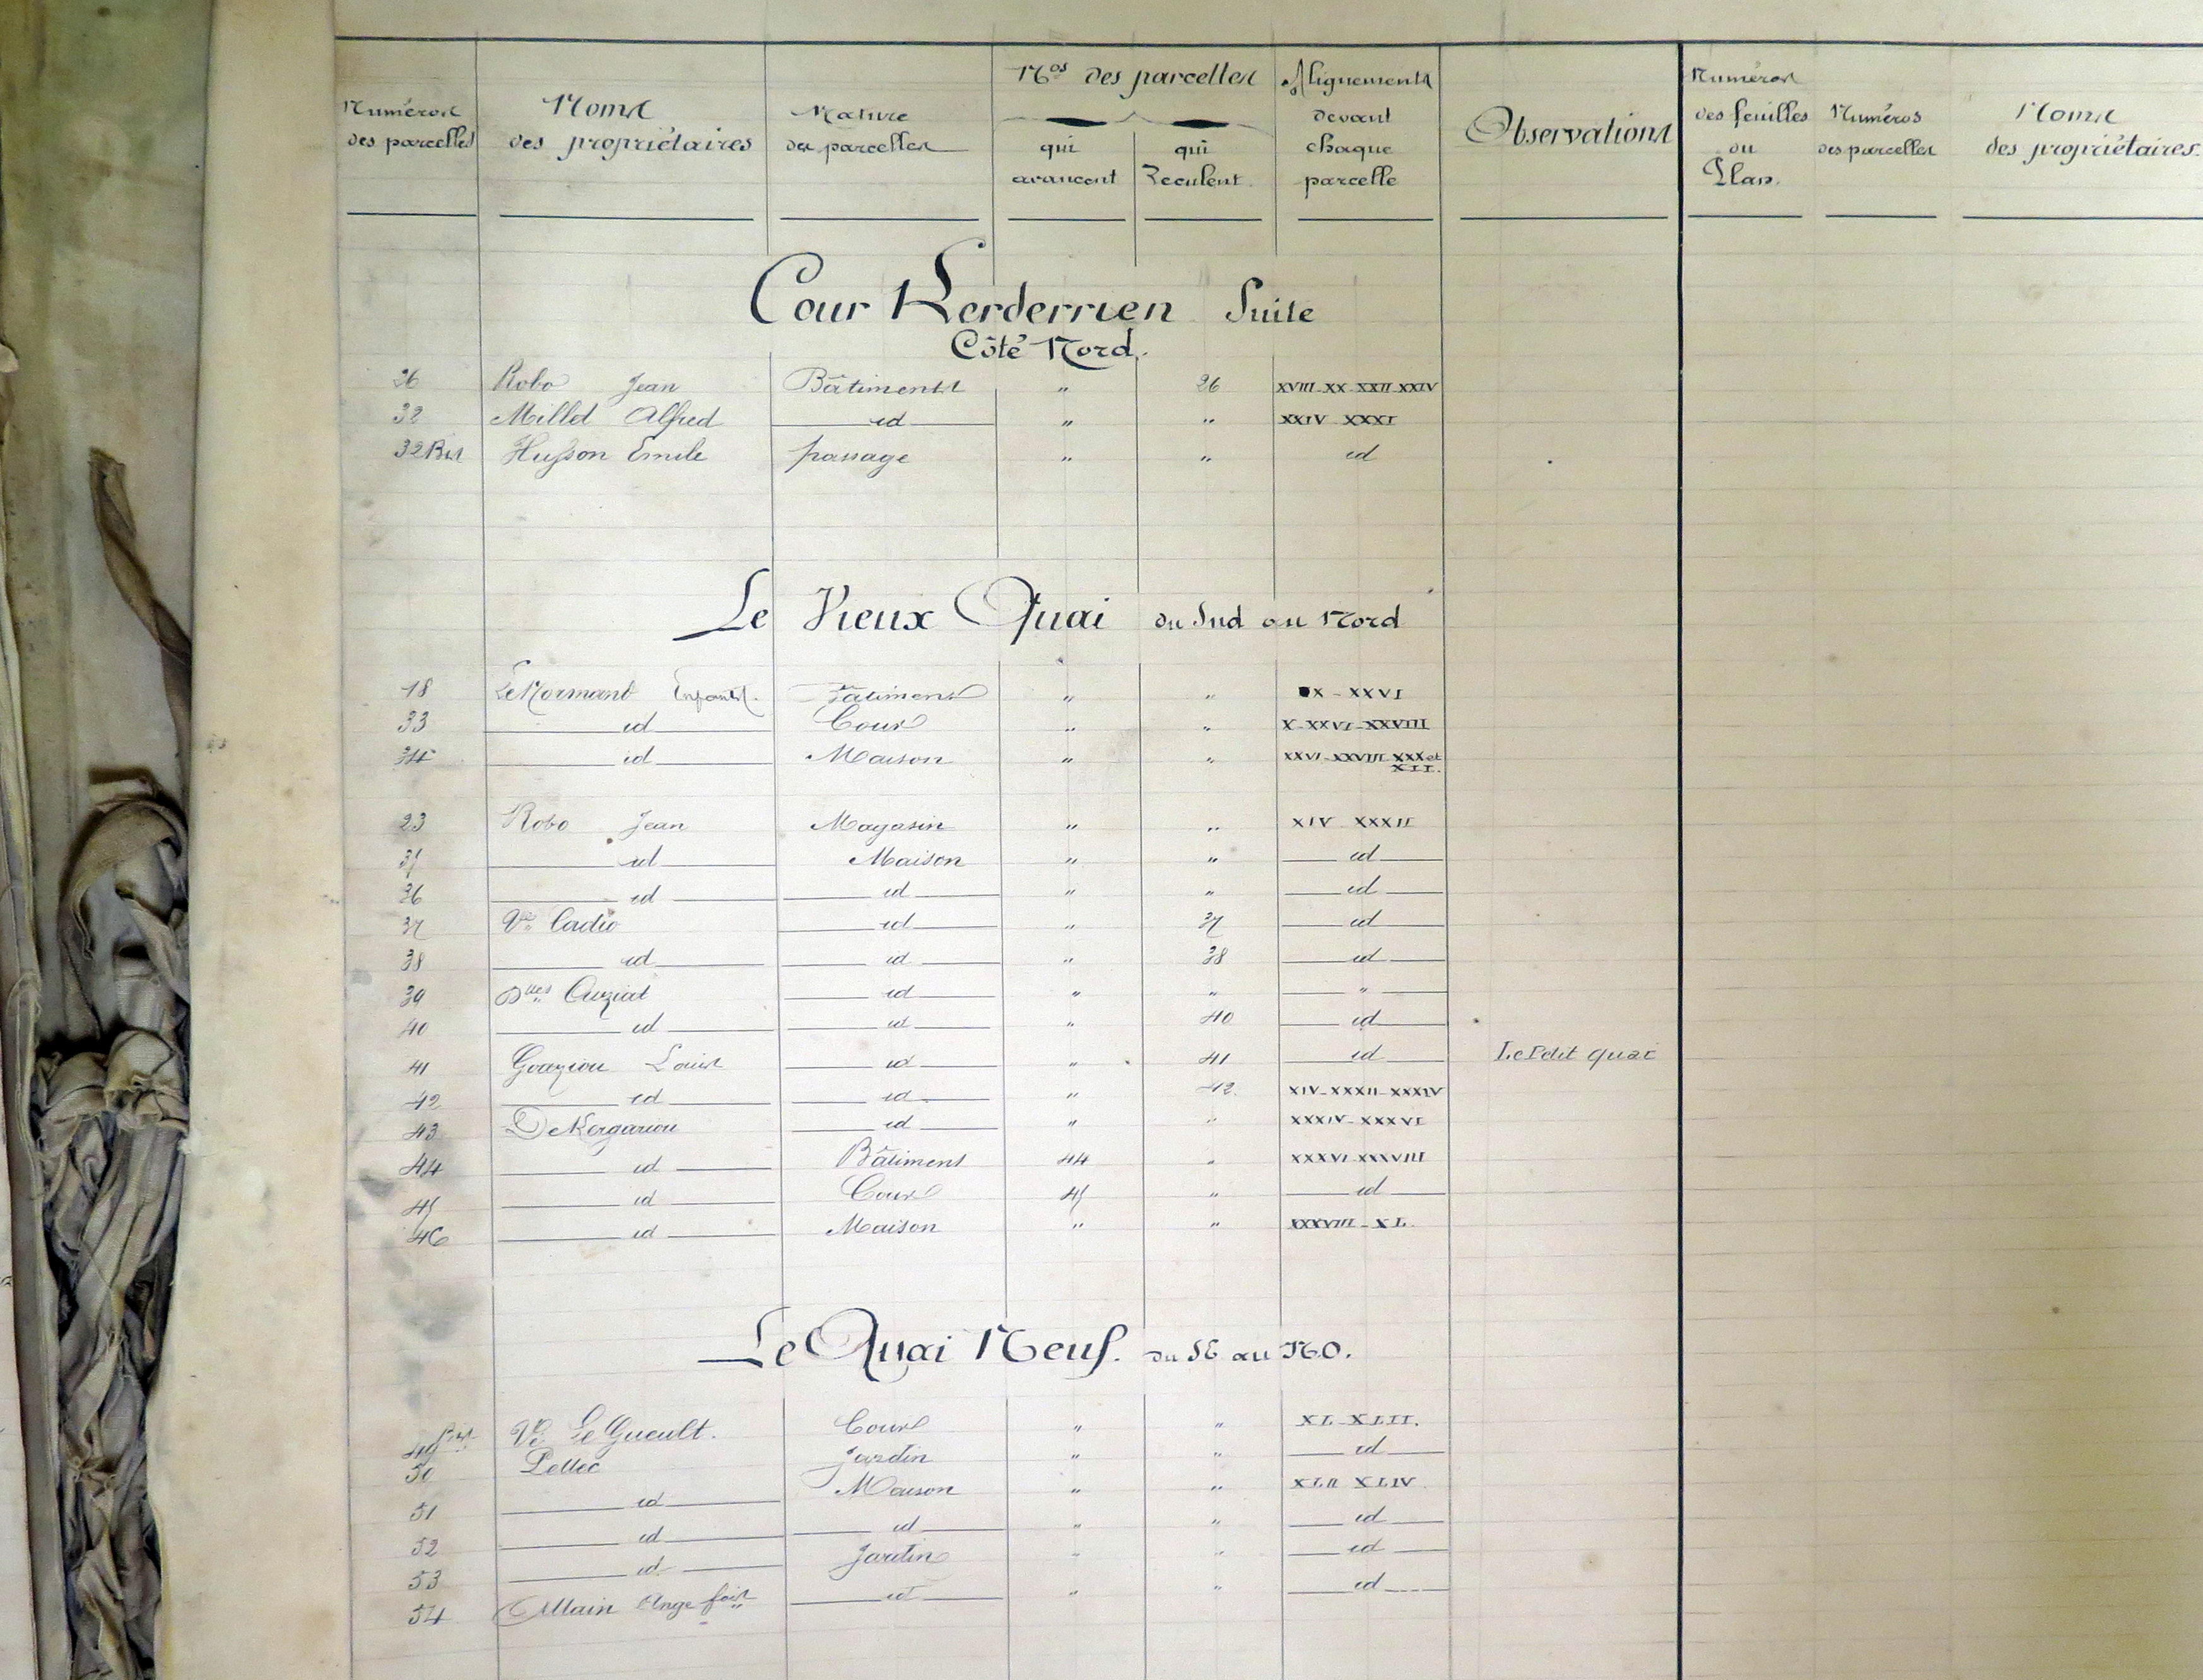 Nos des parcelles Alignements Numéros
Numéros Noms Nature devant Observations des feuilles Numéros Noms
des parcelles des propriétaires des parcelles qui qui chaque du des parcelles des propriétaires.
avancent Reculent. parcelle Plan.
Cour Kerderrien Suite
Côté Nord.
26 Robo Jean Bâtiments " 26 XVIII-XX-XXII-XXIV
32 Millet Alfred id " " XXIV-XXXI
32 Bis Husson Emile passage " " id
Le Vieux Quai du Sud au Nord
18 Le Normand Enfants. Bâtiments " " X-XXVI
33 id Cour " " X-XXVI-XXVIII
34 id Maison " " XXVI-XXVIII-XXX et
XII.
23 Robo Jean Magasin " " XIV XXXII
id Maison " " id
36 id id " " id
37 Ve Cadic id " 37 id
38 id id " 38 id
39 Dlles id " " "
40 id id " 40 id
41 Goaziou Louis id " 41 id Le Petit quai
42 id id " 42. XIV-XXXII-XXXIV
43 De Kergariou id " " XXXIV-XXXVI
44 id Bâtiment 44 " XXXVI-XXXVIII
45 id Cour 45 " id
46 id Maison " " XXXVIII-XL.
Le Quai Neuf. du SE au NO.
49 bis Ve Le Gueult. Cour " " XL-XLII.
50 Jardin " " id
51 id Maison " " XLII XLIV
52 id id " " id
53 id Jardin " " id
54 Allain Ange id " " id